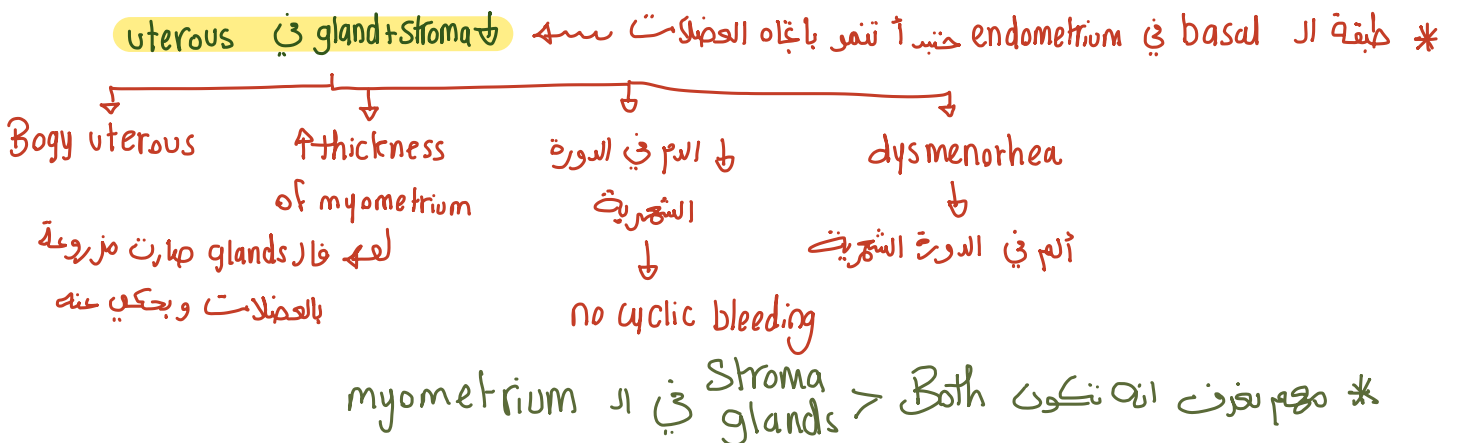 * طبقة ال basal في endometrium حتبدأ تنمو باتجاه العضلات ↓gland+stroma في uterous
Bogy uterous
↑thickness
of myometrium
فال glands صارت مزروعة
بالعضلات وبحكي عنه
↓ الدم في الدورة
الشهرية
no cyclic bleeding
dysmenorhea
ألم في الدورة الشهرية
* مهم نعرف انه تكون Both < Stroma glands في ال myometrium